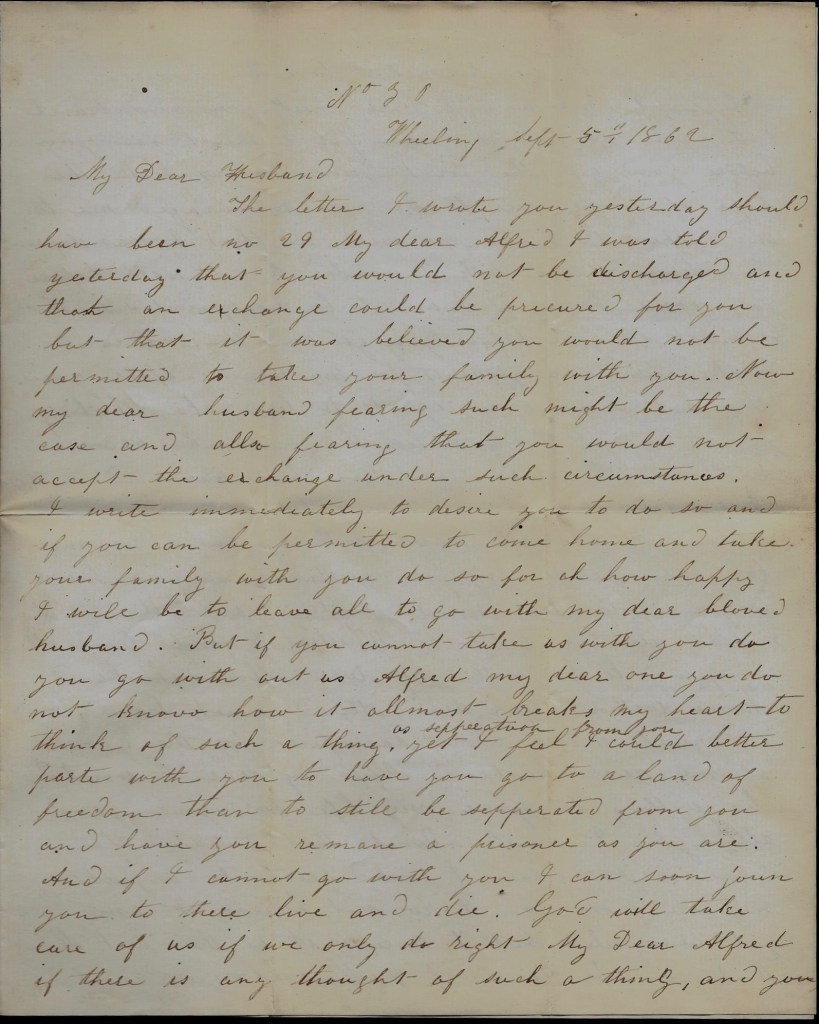 No 30
Wheeling Sept 5" 1862
My Dear Husband
The letter I wrote you yesterday should
have been no 29 My dear Alfred I was told
yesterday that you would not be discharged and
that an exchange could be procured for you
but that it was believed you would not be
permitted to take your family with you. Now
my dear husband fearing such might be the
case and allso fearing that you would not
accept the exchange under such circumstances.
I write immediately to desire you to do so and
if you can be permitted to come home and take
your family with you do so for oh how happy
I will be to leave all to go with my dear bloved
husband. But if you cannot take us with you do
you go with out us Alfred my dear one you do
not know how it allmost breaks my heart to
think of such a thing. as sepperation from you
yet I feel I could better
parte with you to have you go to a land of
freedom than to still be sepperated from you
and have you remane a prisoner as you are.
And if I cannot go with you I can soon join
you to there live and die. God will take
care of us if we only do right My Dear Alfred
if there is any thought of such a thing, and you